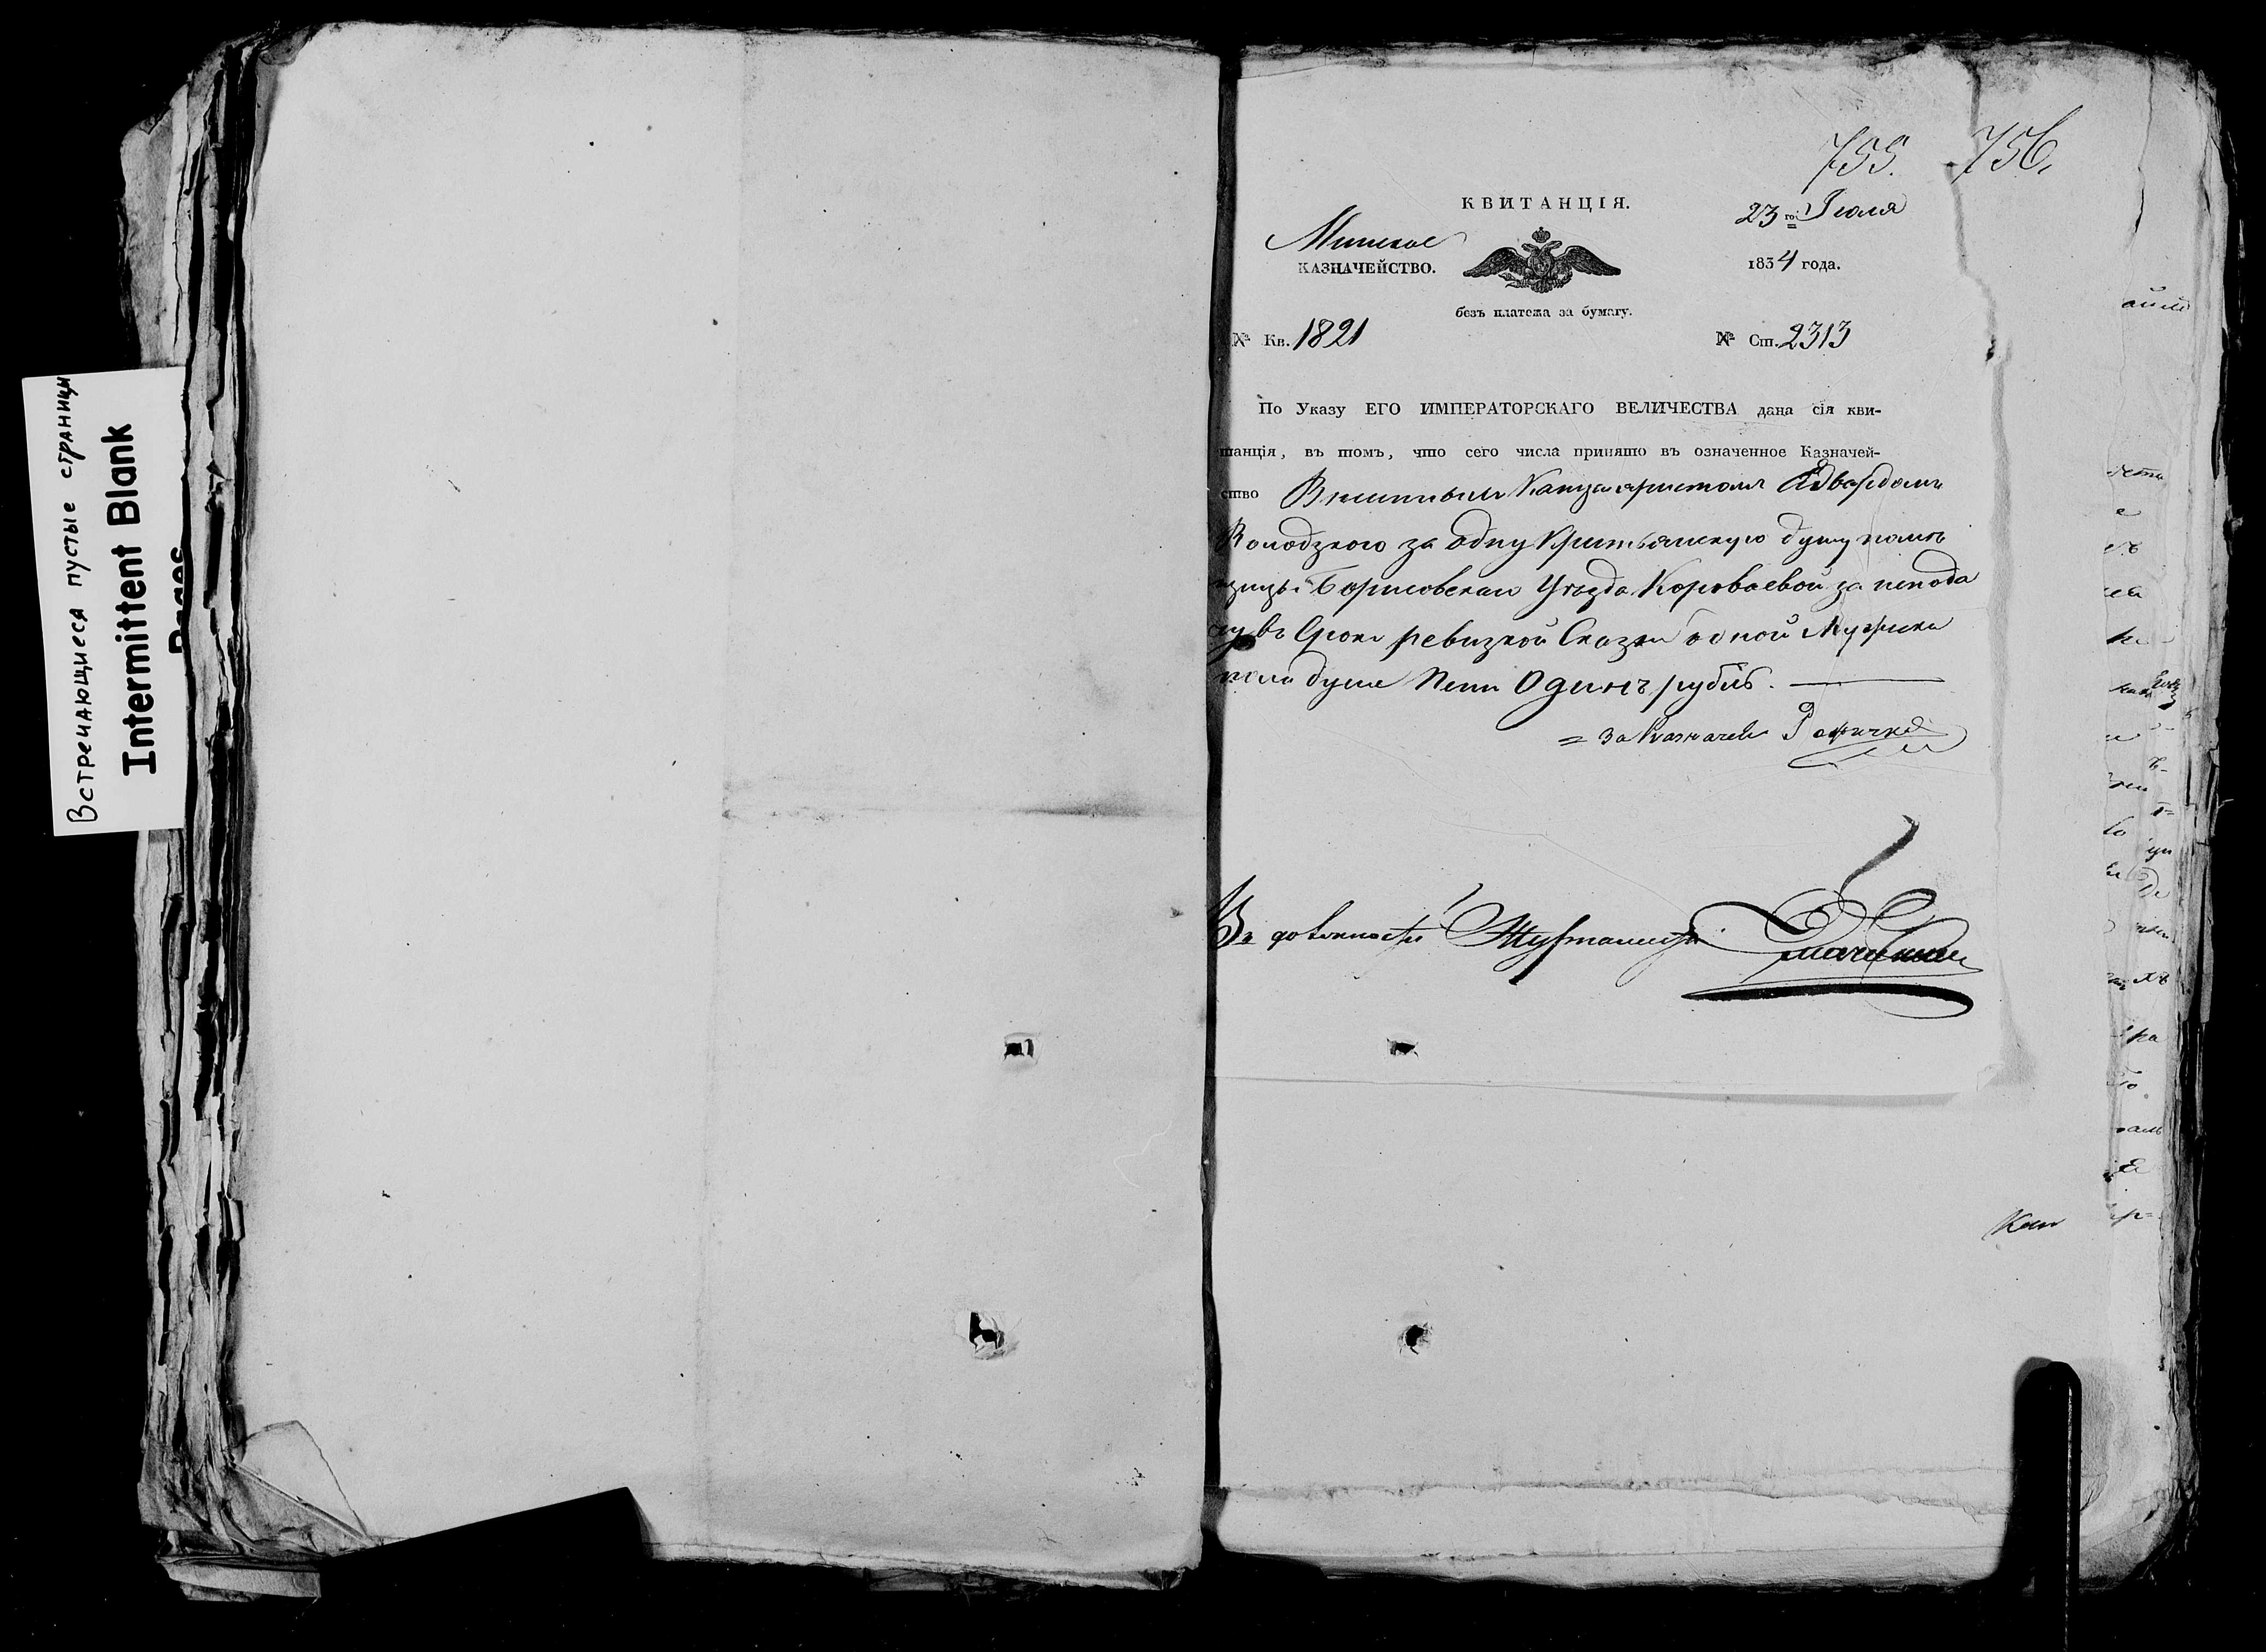 Встречающиеся пустые страницы
Intermittent Blank
Pages
755. 756.
КВИТАНЦІЯ.
23го Іюля
Минское
КАЗНАЧЕЙСТВО.
1834 года.
безъ платежа за бумагу.
№ Кв. 1821
№ Ст. 2313
По Указу ЕГО ИМПЕРАТОРСКАГО ВЕЛИЧЕСТВА дана сія кви-
танція, въ томъ, что сего числа принято въ означенное Казначей-
ство Канцеляристомъ Эдвардомъ
за одну Крестьянскую душу помѣ
щицы Борисовскаго Уѣзда Короваевой за непода
чу въ Срокъ ревизкой Сказки одной Мужеска
пола души Пени Одинъ рубль.
За Казначея
Въ должности